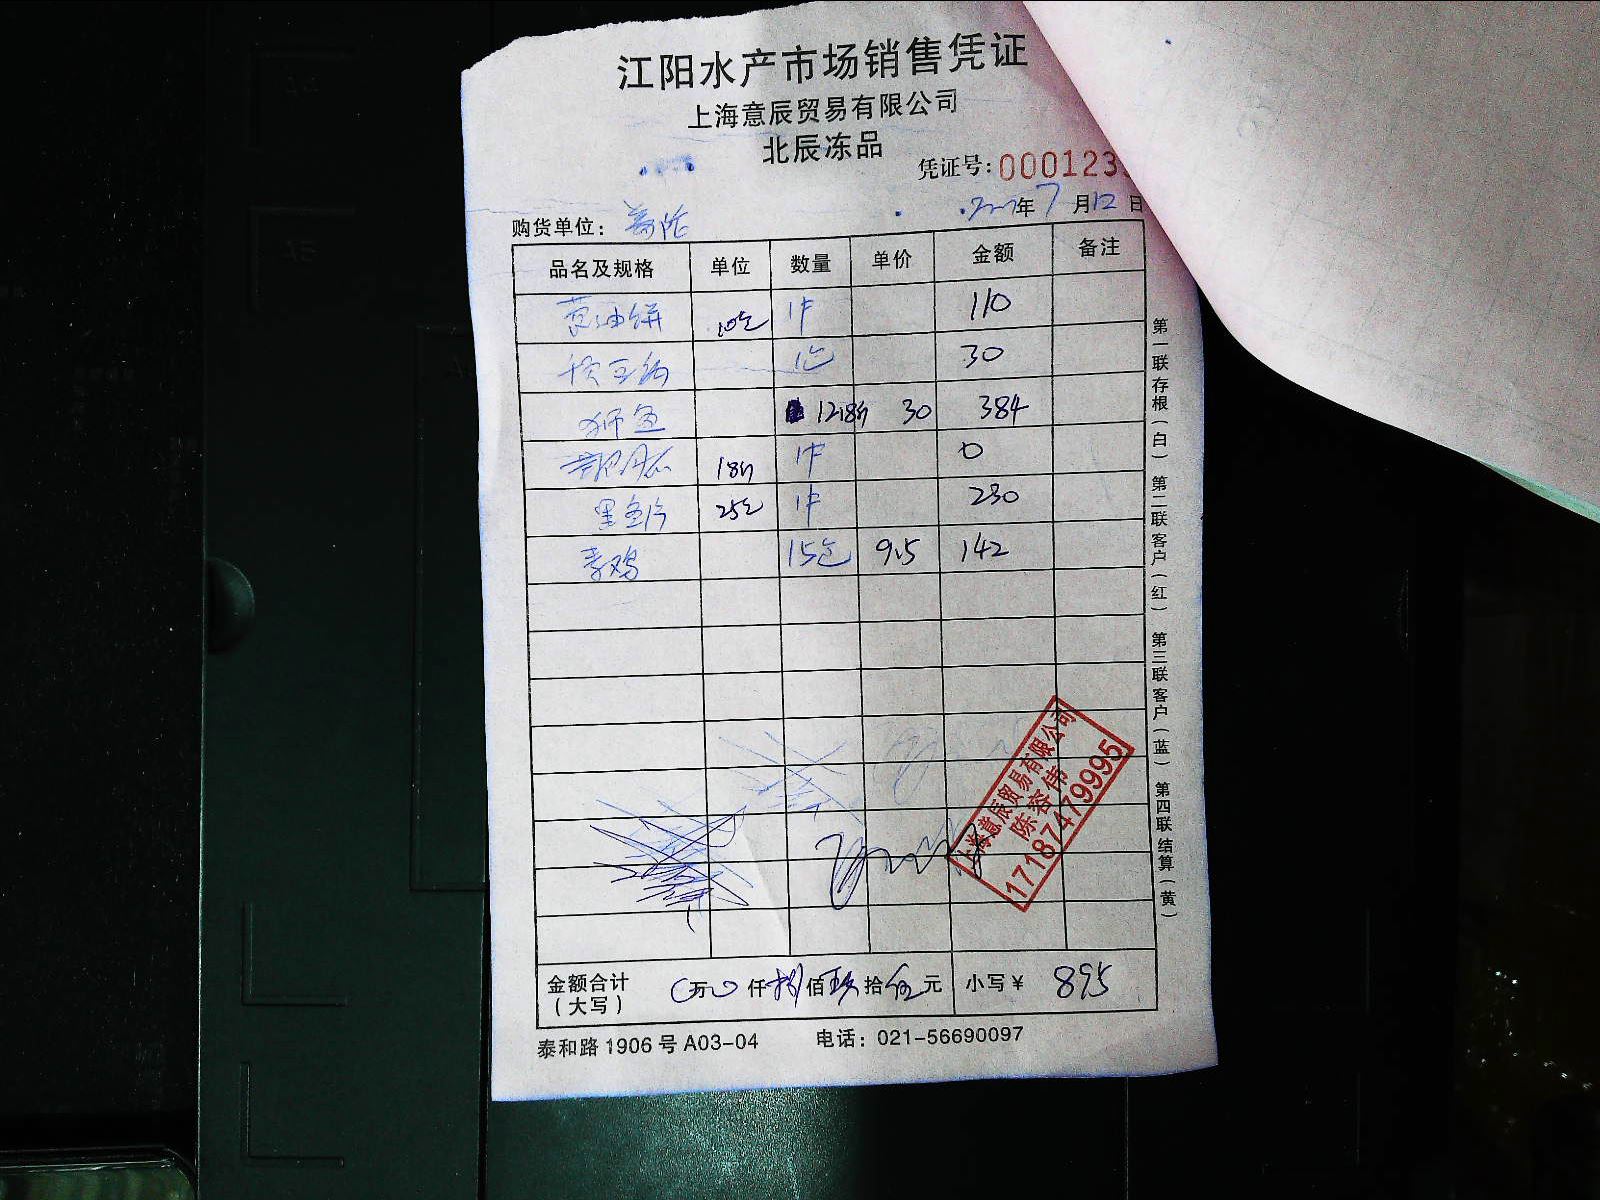 江阳水产市场销售凭证
上海意辰贸易有限公司
北辰冻品
凭证号:000123
年7月12日
购货单位:
品名及规格 单位 数量 单价 金额 备注
葱油饼 10包 1件 110
1包 30
鱼 12.8斤 30 384
18斤 1件 0
黑鱼片 25包 1件 230
鸡 15包 9.5 142
上海意辰贸易有限公司
陈容伟
17187479995
金额合计(大写) 0万0仟捌佰玖拾伍元 小写¥ 895
泰和路1906号A03-04 电话:021-56690097
第一联存根(白) 第二联客户(红) 第三联客户(蓝) 第四联结算(黄)